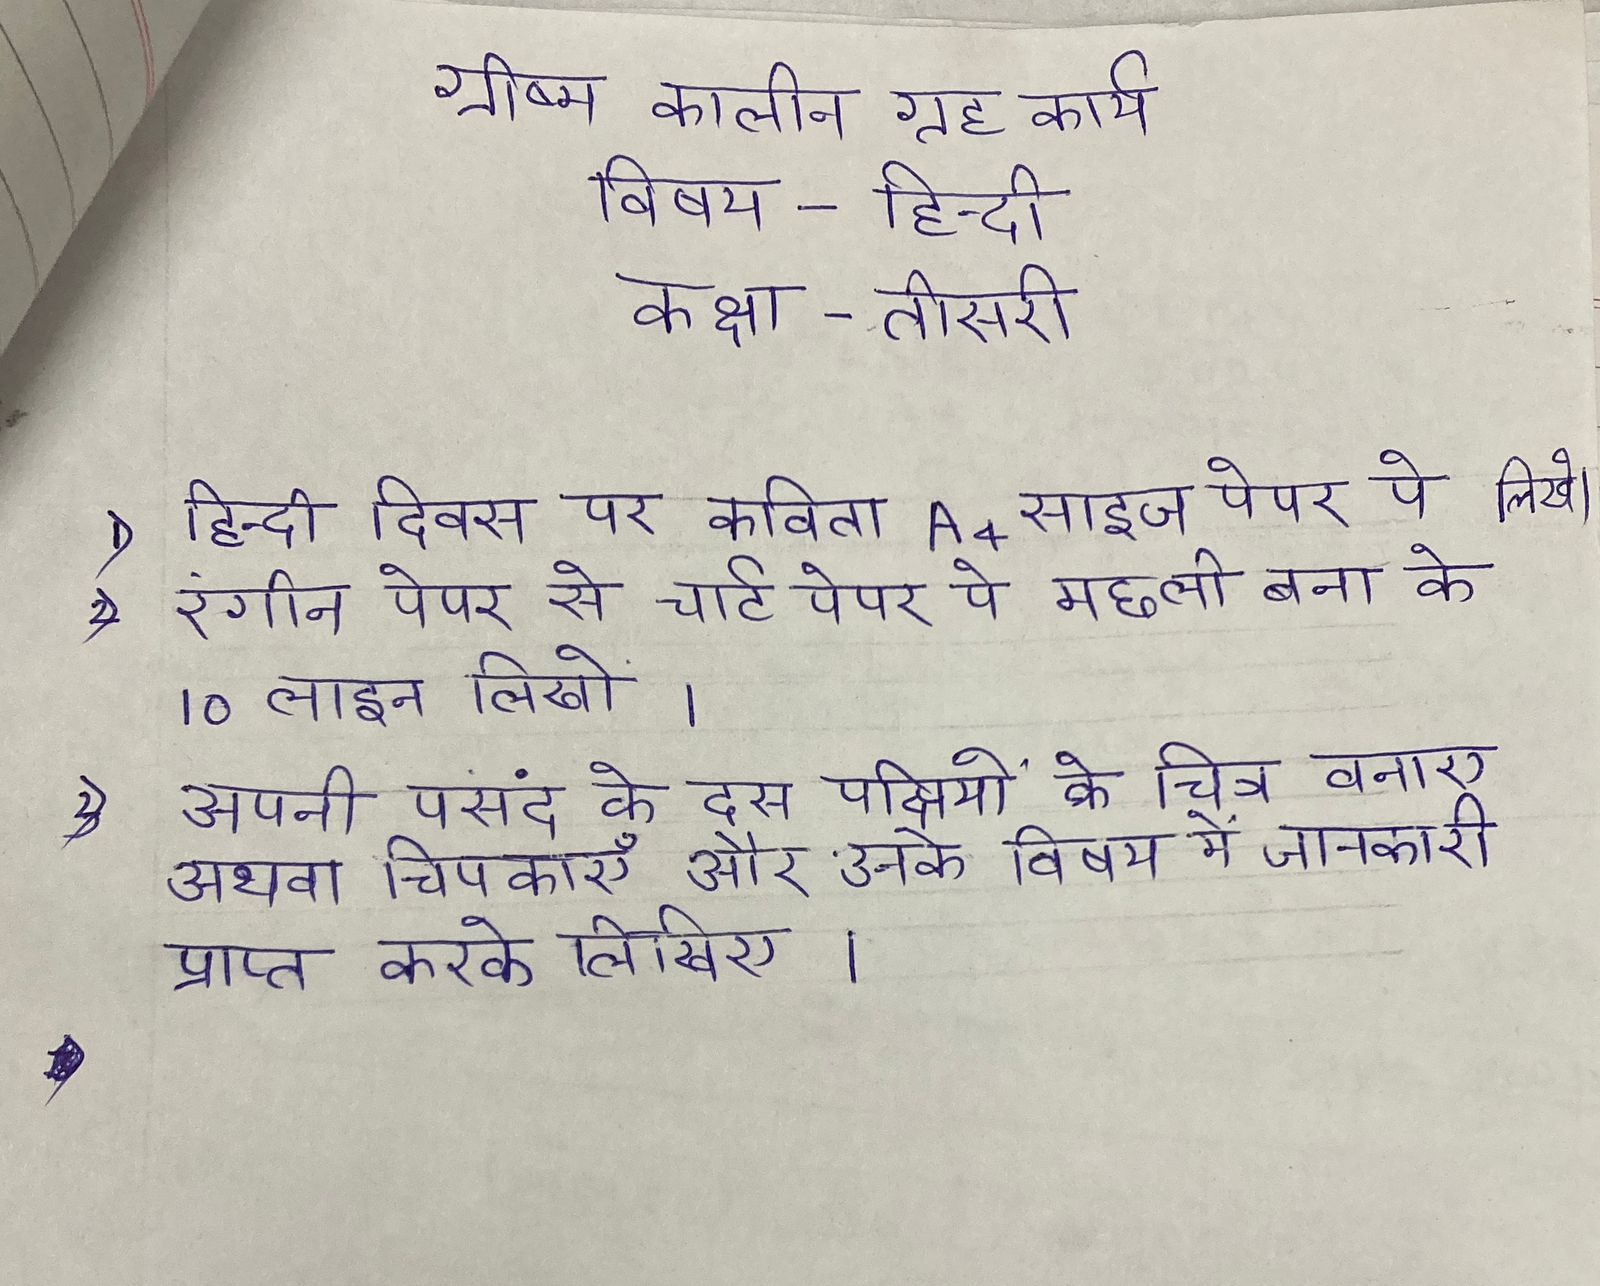 ग्रीष्म कालीन गृह कार्य
विषय - हिन्दी
कक्षा - तीसरी
1) हिन्दी दिवस पर कविता A4 साइज पेपर पे लिखे।
2) रंगीन पेपर से चार्ट पेपर पे मछली बना के
10 लाइन लिखों ।
3) अपनी पसंद के दस पक्षियों के चित्र वनाए
अथवा चिपकाएँ और उनके विषय में जानकारी
प्राप्त करके लिखिए ।